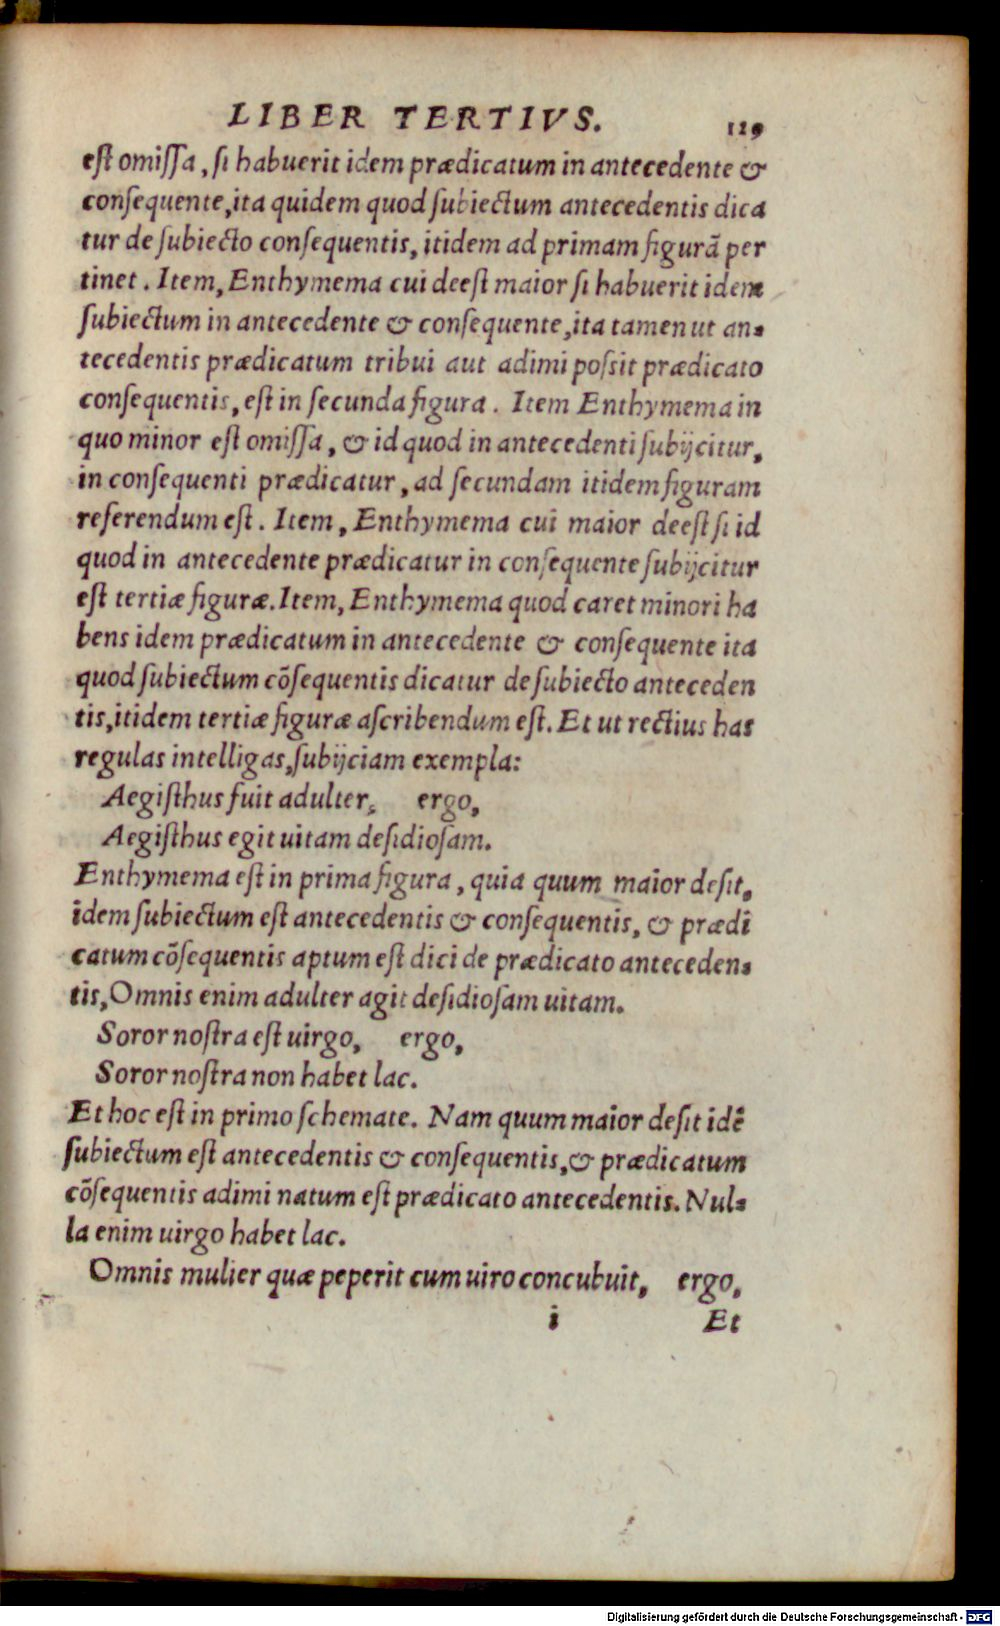 LIBER TERTIVS. 129
est omissa, si habuerit idem prædicatum in antecedente &
consequente, ita quidem quod subiectum antecedentis dica
tur de subiecto consequentis, itidem ad primam figurã per
tinet. Item, Enthymema cui deest maior si habuerit idem
subiectum in antecedente & consequente, ita tamen ut an-
tecedentis prædicatum tribui aut adimi possit prædicato
consequentis, est in secunda figura. Item Enthymema in
quo minor est omissa, & id quod in antecedenti subijcitur,
in consequenti prædicatur, ad secundam itidem figuram
referendum est. Item, Enthymema cui maior deest si id
quod in antecedente prædicatur in consequente subijcitur
est tertiæ figuræ. Item, Enthymema quod caret minori ha
bens idem prædicatum in antecedente & consequente ita
quod subiectum cõsequentis dicatur de subiecto anteceden
tis, itidem tertiæ figuræ ascribendum est. Et ut rectius has
regulas intelligas, subijciam exempla:
Aegisthus fuit adulter, ergo,
Aegisthus egit uitam desidiosam.
Enthymema est in prima figura, quia quum maior desit,
idem subiectum est antecedentis & consequentis, & prædi
catum cõsequentis aptum est dici de prædicato anteceden-
tis, Omnis enim adulter agit desidiosam uitam.
Soror nostra est uirgo, ergo,
Soror nostra non habet lac.
Et hoc est in primo schemate. Nam quum maior desit idẽ
subiectum est antecedentis & consequentis, & prædicatum
cõsequentis adimi natum est prædicato antecedentis. Nul-
la enim uirgo habet lac.
Omnis mulier quæ peperit cum uiro concubuit, ergo,
i Et
Digitalisierung gefördert durch die Deutsche Forschungsgemeinschaft - DFG